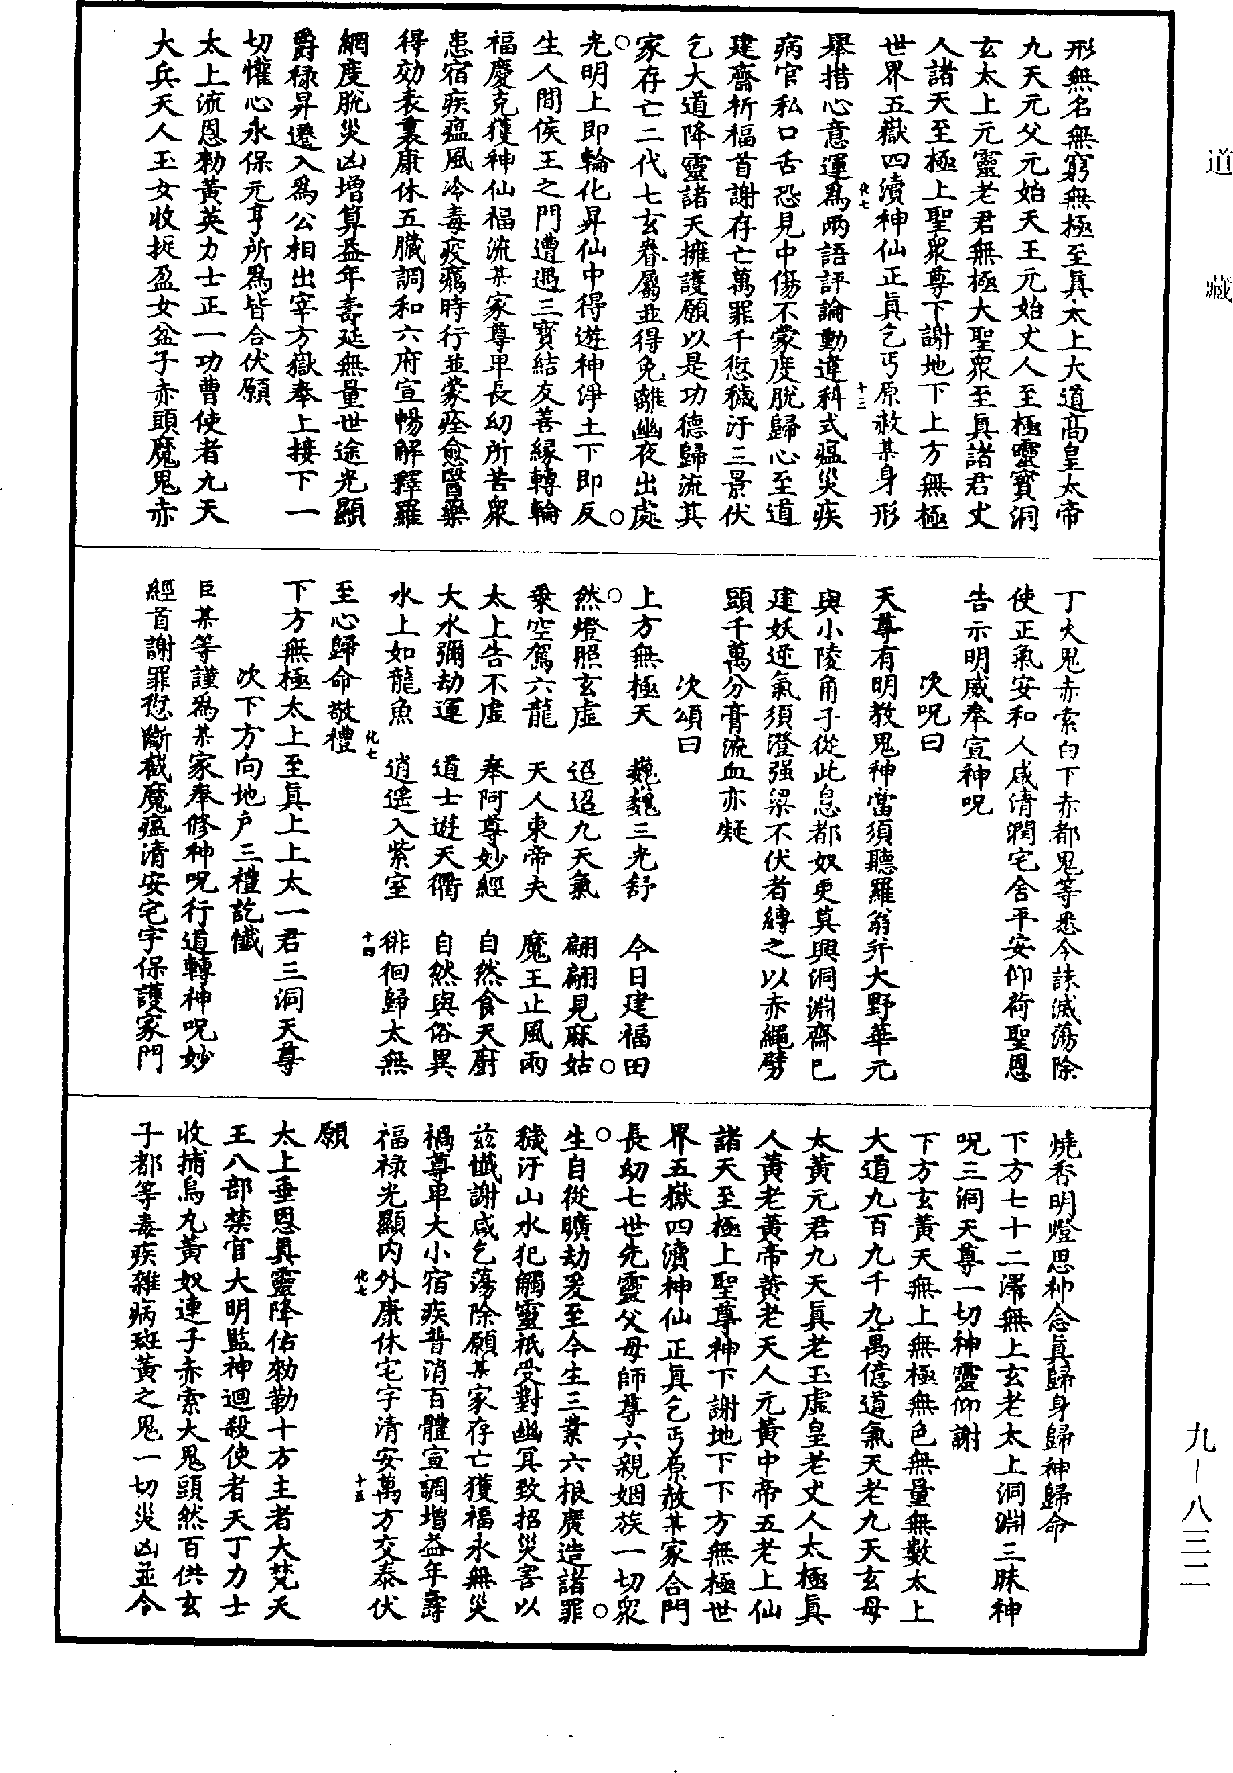 道藏
形無名無窮無極至真太上大道高皇太帝
九天元父元始天王元始丈人至極靈寶洞
玄太上元靈老君無極大聖眾至真諸君丈
人諸天至極上聖眾尊下謝地下上方無極
世界五嶽四瀆神仙正真乞丐原赦某身形
化七
十三
舉措心意運為兩語評論動違科式瘟災疾
病官私口舌恐見中傷不蒙度脫歸心至道
建齋祈福首謝存亡萬罪千愆穢汙三景伏
乞大道降靈諸天擁護願以是功德歸流其
家存亡二代七玄眷屬並得免離幽夜出處
光明上即輪化昇仙中得遊神淨土下即反
生人間侯王之門遭遇三寶結友善緣轉輪
福慶克獲神仙福流某家尊卑長幼所苦眾
患宿疾瘟風冷毒疫癘時行並蒙痊愈醫藥
得効表裏康休五臟調和六府宣暢解釋羅
網度脫災凶增算益年壽延無量世途光顯
爵祿昇遷入為公相出宰方嶽奉上接下一
切懽心永保元亨所為皆合伏願
太上流恩勑黃英力士正一功曹使者九天
大兵天人玉女收捉盈女盆子赤頭魔鬼赤
丁大鬼赤索白下赤都鬼等悉今誅滅蕩除
使正氣安和人咸清潤宅舍平安仰荷聖恩
告示明威奉宣神呪
次呪曰
天尊有明教鬼神當須聽羅翁并大野華元
與小陵角子從此息都奴更莫興洞淵齋已
建妖逆氣須澄强梁不伏者縛之以赤繩劈
頭千萬分膏流血亦凝
次頌曰
上方無極天 巍巍三光舒 今日建福田
然燈照玄虛 迢迢九天氣 翩翩見麻姑
乘空駕六龍 天人東帝夫 魔王止風雨
太上告不虛 奉阿尊妙經 自然食天廚
大水彌劫運 道士遊天衢 自然與俗異
水上如龍魚 逍遥入紫室 徘徊歸太無
化七
十四
至心歸命敬禮
下方無極太上至真上上太一君三洞天尊
次下方向地户三禮訖懺
臣某等謹為某家奉修神呪行道轉神呪妙
經首謝罪愆斷截魔瘟清安宅宇保護家門
燒香明燈思神念真歸身歸神歸命
下方七十二滯無上玄老太上洞淵三昧神
呪三洞天尊一切神靈仰謝
下方玄黃天無上無極無色無量無數太上
大道九百九千九萬億道氣天老九天玄母
太黃元君九天真老玉虛皇老丈人太極真
人黃老黃帝黃老天人元黃中帝五老上仙
諸天至極上聖尊神下謝地下下方無極世
界五嶽四瀆神仙正真乞丐原赦某家合門
長幼七世先靈父母師尊六親姻族一切眾
生自從曠劫爰至今生三業六根廣造諸罪
穢汙山水犯觸靈祇受對幽冥致招災害以
玆懺謝咸乞蕩除願某家存亡獲福永無災
禍尊卑大小宿疾普消百體宣調增益年壽
福祿光顯內外康休宅宇清安萬方交泰伏
化七
十五
願
太上垂恩真靈降佑勑勒十方主者大梵天
王八部禁官大明監神迴殺使者天丁力士
收捕烏九黃奴連子赤索大鬼頭然百供玄
子都等毒疾雜病斑黃之鬼一切災凶並令
九－八三二